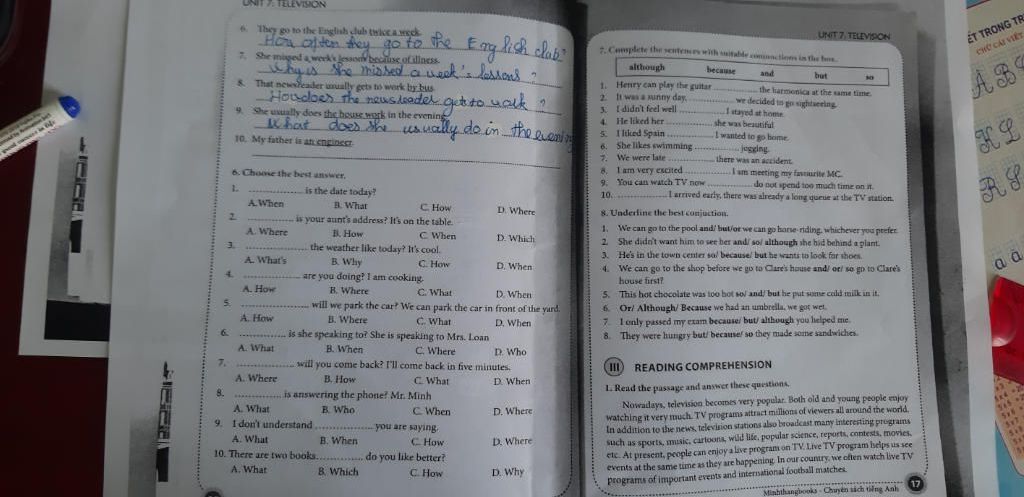 UNIT 7: TELEVISION
6. They go to the English club twice a week.
How often they go to the English club?
7. She missed a week's lessons because of illness.
Why is she missed a week's lessons ?
8. That newsreader usually gets to work by bus.
How does the newsreader get to walk ?
9. She usually does the house work in the evening.
What does she usually do in the evening
10. My father is an engineer.
6. Choose the best answer.
1. ................ is the date today?
A. When B. What C. How D. Where
2. ................ is your aunt's address? It's on the table.
A. Where B. How C. When D. Which
3. ................ the weather like today? It's cool.
A. What's B. Why C. How D. When
4. ................ are you doing? I am cooking.
A. How B. Where C. What D. When
5. ................ will we park the car? We can park the car in front of the yard.
A. How B. Where C. What D. When
6. ................ is she speaking to? She is speaking to Mrs. Loan
A. What B. When C. Where D. Who
7. ................ will you come back? I'll come back in five minutes.
A. Where B. How C. What D. When
8. ................ is answering the phone? Mr. Minh
A. What B. Who C. When D. Where
9. I don't understand ................ you are saying.
A. What B. When C. How D. Where
10. There are two books................ do you like better?
A. What B. Which C. How D. Why
UNIT 7. TELEVISION
7. Complete the sentences with suitable conjunctions in the box.
although because and but so
1. Henry can play the guitar ................ the harmonica at the same time.
2. It was a sunny day, ................ we decided to go sightseeing.
3. I didn't feel well ................ I stayed at home.
4. He liked her ................ she was beautiful
5. I liked Spain ................ I wanted to go home.
6. She likes swimming ................ jogging.
7. We were late ................ there was an accident.
8. I am very excited ................ I am meeting my favourite MC.
9. You can watch TV now ................ do not spend too much time on it.
10. ................ I arrived early, there was already a long queue at the TV station.
8. Underline the best conjuction.
1. We can go to the pool and/ but/or we can go horse-riding, whichever you prefer.
2. She didn't want him to see her and/ so/ although she hid behind a plant.
3. He's in the town center so/ because/ but he wants to look for shoes.
4. We can go to the shop before we go to Clare's house and/ or/ so go to Clare's
house first?
5. This hot chocolate was too hot so/ and/ but he put some cold milk in it.
6. Or/ Although/ Because we had an umbrella, we got wet.
7. I only passed my exam because/ but/ although you helped me.
8. They were hungry but/ because/ so they made some sandwiches.
III READING COMPREHENSION
1. Read the passage and answer these questions.
Nowadays, television becomes very popular. Both old and young people enjoy
watching it very much. TV programs attract millions of viewers all around the world.
In addition to the news, television stations also broadcast many interesting programs
such as sports, music, cartoons, wild life, popular science, reports, contests, movies,
etc. At present, people can enjoy a live program on TV. Live TV program helps us see
events at the same time as they are happening. In our country, we often watch live TV
programs of important events and international football matches.
Minhthangbooks - Chuyên sách tiếng Anh 17
ÉT TRONG TR
CHỮ CÁI VIẾT